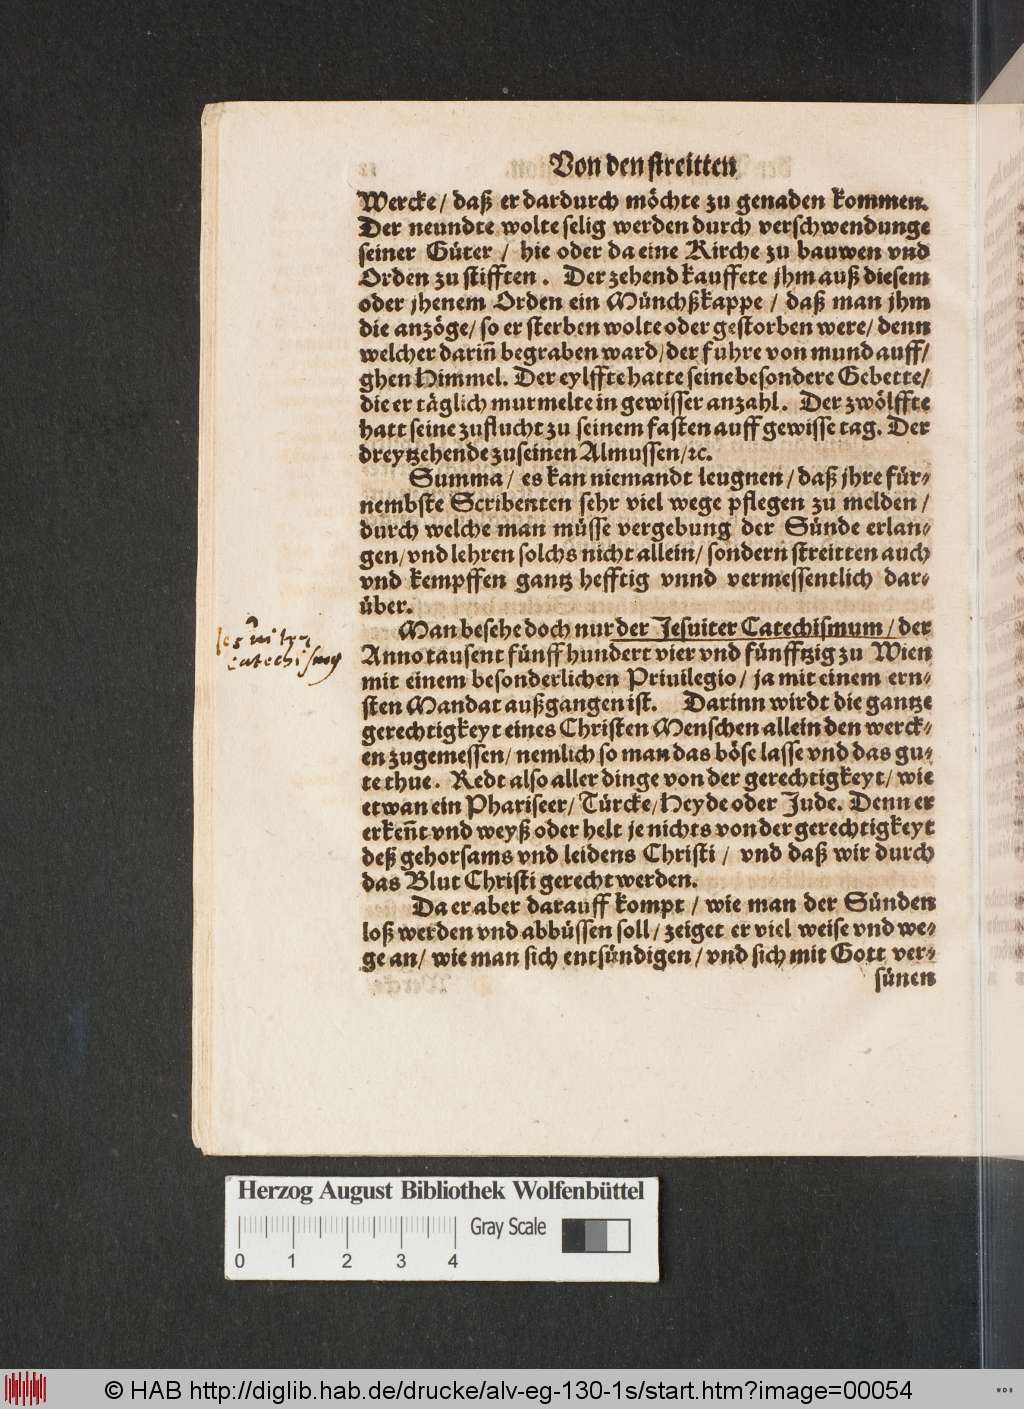 Von den streitten
Wercke / daß er dardurch möchte zu genaden kommen.
Der neundte wolte selig werden durch verschwendunge
seiner Güter / hie oder da eine Kirche zu bauwen vnd
Orden zu stifften. Der zehend kauffete jhm auß diesem
oder jhenem Orden ein Münchßkappe / daß man jhm
die anzöge / so er sterben wolte oder gestorben were / denn
welcher dariñ begraben ward / der fuhre von mund auff /
ghen Himmel. Der eylffte hatte seine besondere Gebette /
die er täglich murmelte in gewisser anzahl. Der zwölffte
hatt seine zuflucht zu seinem fasten auff gewisse tag. Der
dreytzehende zu seinen Almussen / ꝛc.
Summa / es kan niemandt leugnen / daß jhre für⸗
nembste Scribenten sehr viel wege pflegen zu melden /
durch welche man müsse vergebung der Sünde erlan⸗
gen / vnd lehren solchs nicht allein / sondern streitten auch
vnd kempffen gantz hefftig vnnd vermessentlich dar⸗
über.
Man besehe doch nur der Jesuiter Catechismum / der
Anno tausent fünff hundert vier vnd fünfftzig zu Wien
mit einem besonderlichen Priuilegio / ja mit einem ern⸗
sten Mandat außgangen ist. Darinn wirdt die gantze
gerechtigkeyt eines Christen Menschen allein den werck⸗
en zugemessen / nemlich so man das böse lasse vnd das gu⸗
te thue. Redt also aller dinge von der gerechtigkeyt / wie
etwan ein Phariseer / Türcke / Heyde oder Jude. Denn er
erkeñt vnd weyß oder helt je nichts von der gerechtigkeyt
deß gehorsams vnd leidens Christi / vnd daß wir durch
das Blut Christi gerecht werden.
Da er aber darauff kompt / wie man der Sünden
loß werden vnd abbüssen soll / zeiget er viel weise vnd we⸗
ge an / wie man sich entsündigen / vnd sich mit Gott ver⸗
sünen
Catechismq
Herzog August Bibliothek Wolfenbüttel
Gray Scale
0 1 2 3 4
© HAB http://diglib.hab.de/drucke/alv-eg-130-1s/start.htm?image=00054